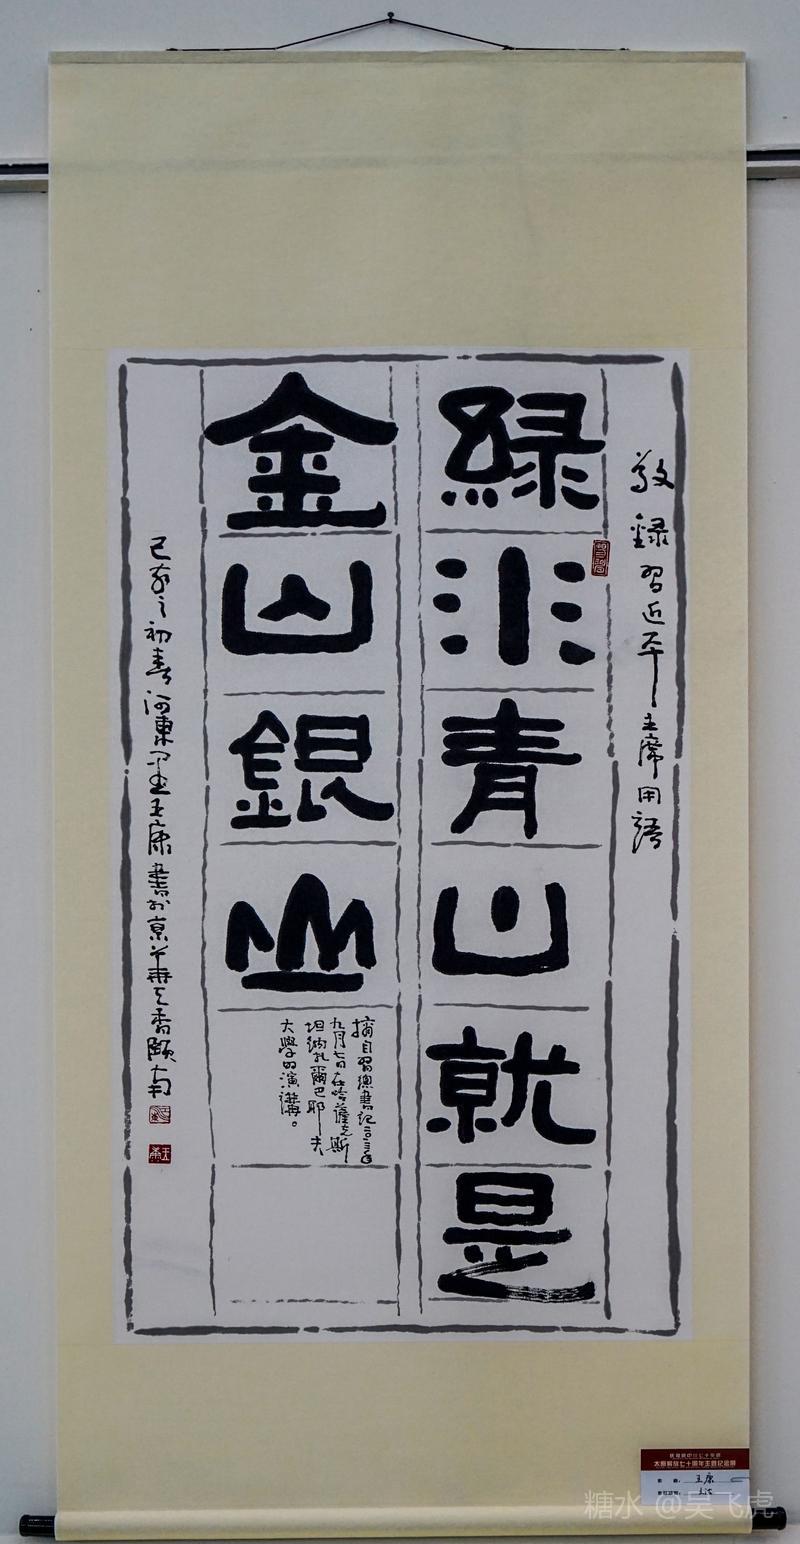 敬録習近平主席用語
緑水青山就是
金山銀山
摘自習總書記二〇一三年
九月七日在哈薩克斯
坦納扎爾巴耶夫
大學的演講。
己亥之初春河東王康書於京華天香頤南
王康
太原解放七十周年主题纪念展
王康
糖水 @吴飞虎